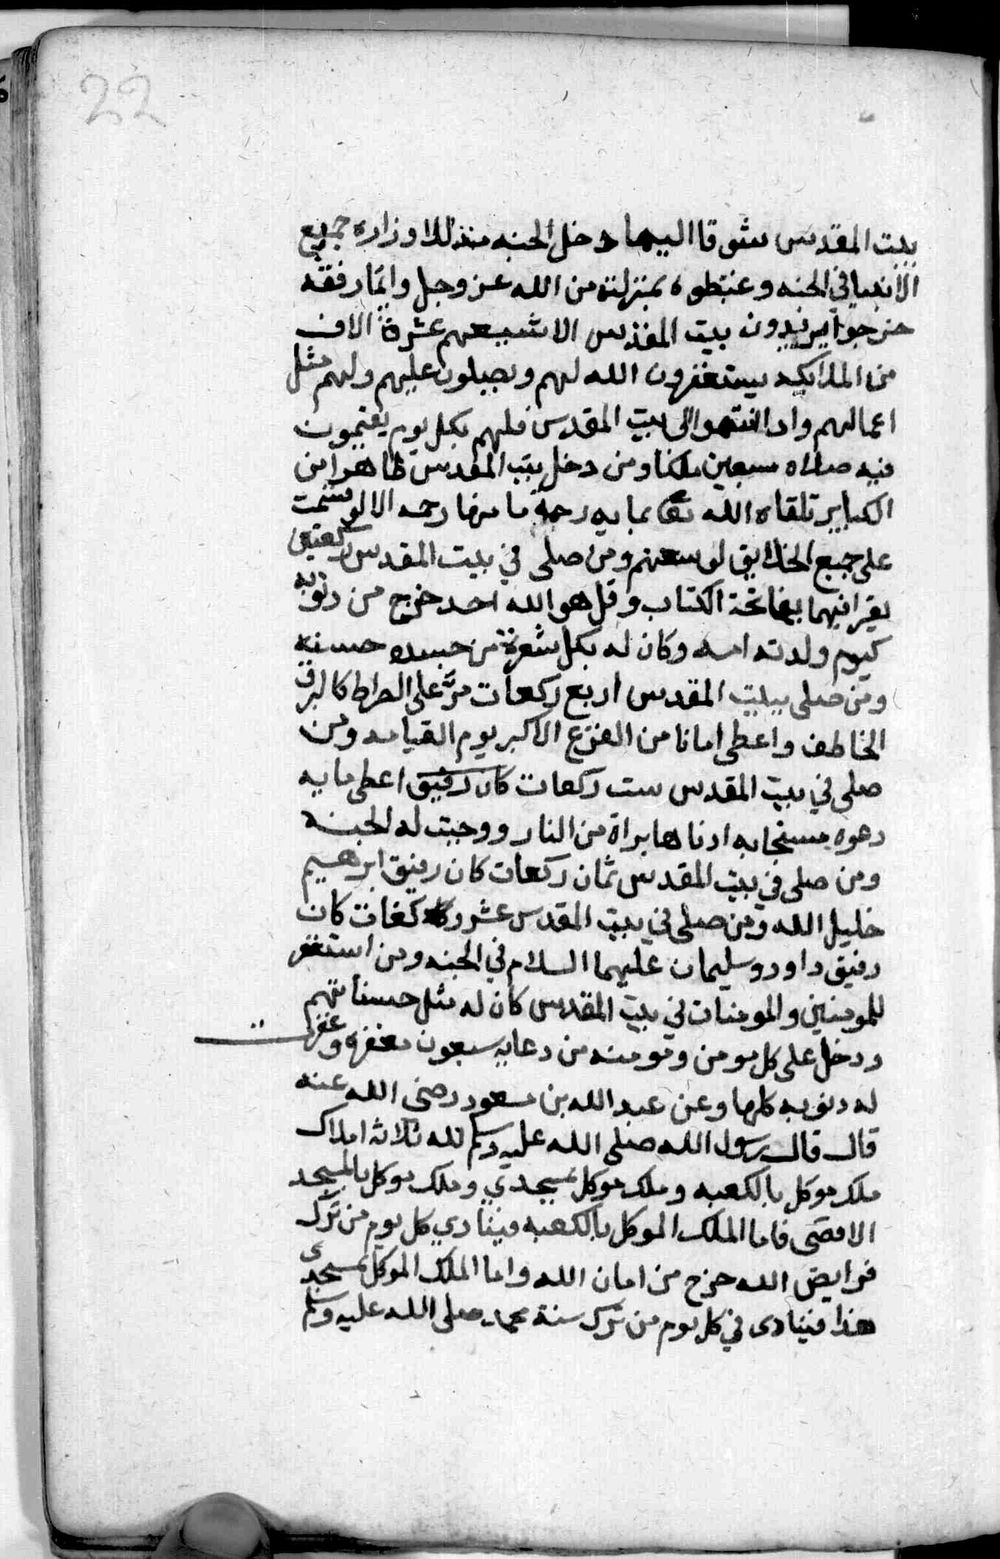 22
بيت المقدس شوقا اليها دخل الجنه مدللا وزاره جميع
الانبيا في الجنه وغبطوه بمنزلته من الله عز وجل وايما رفقه
خرجوا يريدون بيت المقدس الا شيعهم عشرة الاف
من الملايكه يستغفرون الله لهم ويصلون عليهم ولهم مثل
اعمالهم واذا انتهوا الى بيت المقدس فلهم بكل يوم يقيمون
فيه صلاه سبعين ملكا ومن دخل بيت المقدس طاهرا من
الكباير تلقاه الله تعالى بمايه رحمة ما منها رحمه الا لو قسمت
على جميع الخلايق لوسعتهم ومن صلى في بيت المقدس ركعتين
يقرا فيهما بفاتحة الكتاب وقل هو الله احد خرج من ذنوبه
كيوم ولدته امه وكان له بكل شعرة من جسده حسنه
ومن صلى ببيت المقدس اربع ركعات مر على الصراط كالبرق
الخاطف واعطى امانا من الفزع الاكبر يوم القيامه ومن
صلى في بيت المقدس ست ركعات كان رفيق اعطى مايه
دعوه مستجابه ادناها براة من النار ووجبت له الجنه
ومن صلى في بيت المقدس ثمان ركعات كان رفيق ابرهيم
خليل الله ومن صلى في بيت المقدس عشر ركعات كان
رفيق داود وسليمان عليهما السلام في الجنه ومن استغفر
للمومنين والمومنات في بيت المقدس كان له مثل حسناتهم
ودخل على كل مومن ومومنه من دعايه سبعون مغفره وغفرت
له ذنوبه كلها وعن عبد الله بن مسعود رضى الله عنه
قال قال رسول الله صلى الله عليه وسلم لله ثلاثه املاك
ملك موكل بالكعبه وملك موكل بمسجدي وملك موكل بالمسجد
الاقصى فاما الملك الموكل بالكعبه فينادي كل يوم من ترك
فرايض الله خرج من امان الله واما الملك الموكل بمسجدى
هذا فينادى في كل يوم من ترك سنة محمد صلى الله عليه وسلم